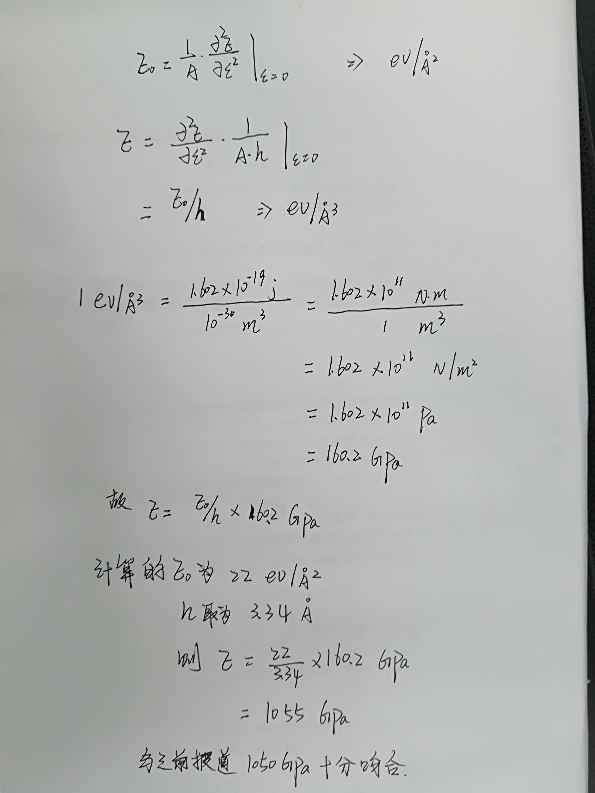 E₀ = 1/A · ∂²E/∂ε² |ε=0 ⇒ eV/Å²
E = ∂²E/∂ε² · 1/(A·h) |ε=0
= E₀/h ⇒ eV/Å³
1 eV/Å³ = 1.602×10⁻¹⁹ j / 10⁻³⁰ m³ = 1.602×10¹¹ N·m / 1 m³
= 1.602×10¹¹ N/m²
= 1.602×10¹¹ Pa
= 160.2 GPa
故 E = E₀/h × 160.2 GPa
计算的E₀为 22 eV/Å²
h 取为 3.34 Å
则 E = 22/3.34 ×160.2 GPa
= 1055 GPa
与之前报道 1050GPa 十分吻合.